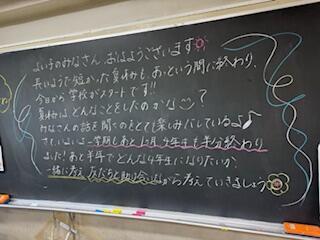 よい子のみなさん、おはようございます
長いようで短かった夏休みも、あっという間に終わり、
今日から学校がスタートです!!
夏休みは、どんなことをしたのかな?
みなさんの話を聞くのもとても楽しみにしているよ♪
さいよいよ一学期もあと1ヵ月、4年生も半分終わり
ました!あと半年でどんな4年生になりたいか、
一緒に考え、友だちと助け合いながら考えていきましょう